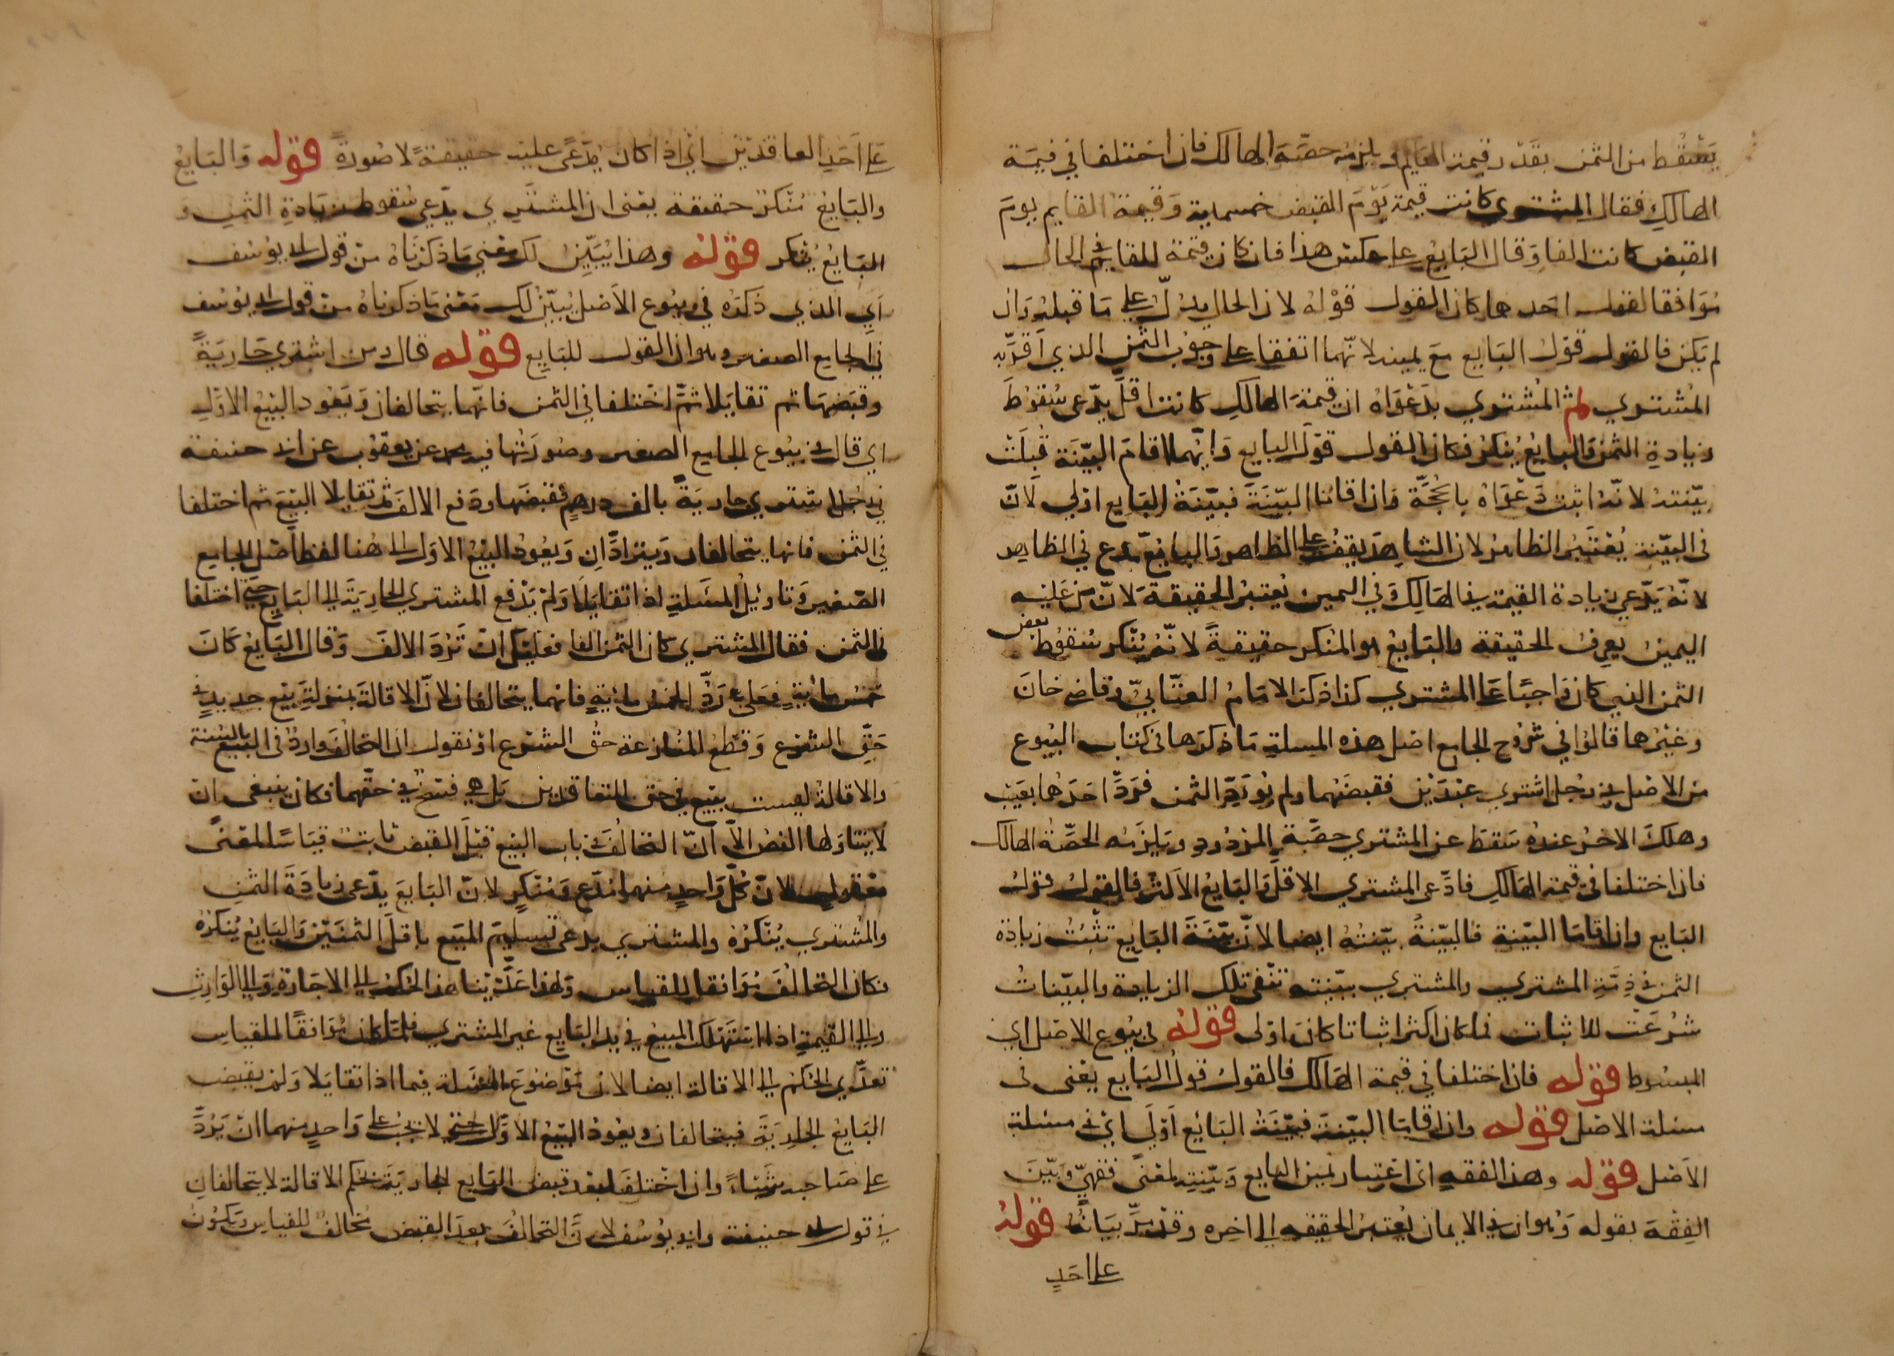 يسقط من الثمن بقدر قيمة القايم ويلزمه حصة الهالك فان اختلفا في قيمة
الهالك فقال المشتري كانت قيمة يوم القبض خمسماية وقيمة القايم يوم
القبض كانت الفا وقال البايع على عكس هذا فان كان قيمة القايم في الحال
موافقا لقول احدهما كان القول قوله لان الحال يدل على ما قبله وان
لم يكن فالقول قول البايع مع يمينه لانهما اتفقا على وجوب الثمن الذي اقر به
المشتري ثم المشتري بدعواه ان قيمة الهالك كانت اقل يدعى سقوط
زيادة الثمن والبايع ينكر فكان القول قول البايع وايهما اقام البينة قبلت
بينته لانه اثبت دعواه بالحجة وان اقاما البينة فبينة البايع اولى لان
في البينة يعتبر الظاهر لان الشاهد يقف على الظاهر والبايع مدع في الظاهر
لانه يدعي زيادة القيمة في الهالك وفي اليمين يعتبر الحقيقة لان من عليه
اليمين يعرف الحقيقة والبايع هو المنكر حقيقة لانه ينكر سقوط بعض
الثمن الذي كان واجبا على المشتري كذا ذكر الامام العتابي وقاضي خان
وغيرهما قالوا في شروح الجامع اصل هذه المسلة ما ذكرها في كتاب البيوع
من الاصل في رجل اشترى عبدين فقبضهما ولم يؤد الثمن فرد احدهما بعيب
وهلك الاخر عنده سقط عن المشتري حصة المردود ويلزمه الحصة الهالك
فان اختلفا في قيمة الهالك فادعى المشتري الاقل والبايع الاكثر فالقول قول
البايع وان اقاما البينة فالبينة بينته ايضا لان بينة البايع تثبت زيادة
الثمن في ذمة المشتري والمشتري ببينته تنفي تلك الزيادة والبينات
شرعت للاثبات فما كان اكثر اثباتا كان اولى قوله في بيوع الاصل اي
المبسوط قوله فان اختلفا في قيمة الهالك فالقول قول البايع يعني في
مسئلة الاصل قوله وان اقاما البينة فبينة البايع اولى اي في مسئلة
الاصل قوله وهذا الفقه اي اعتبار يمين البايع وبينته لمعنى فقهي وبين
الفقه بقوله وهو ان في الايمان يعتبر الحقيقه الى اخره وقد مر بيانه قوله
على احد
على احد العاقدين اي اذا كان يدعى عليه حقيقة لا صورة قوله والبايع
والبايع منكر حقيقة يعني ان المشتري يدعي سقوط زيادة الثمن و
البايع ينكر قوله وهذا يبين لك معنى ما ذكرناه من قول ابي يوسف
اي الذي ذكره في بيوع الاصل يبين لك معنى ما ذكرناه من قول ابي يوسف
في الجامع الصغير وهو ان القول للبايع قوله قال ومن اشترى جارية
وقبضها ثم تقايلا ثم اختلفا في الثمن فانهما يتحالفان ويعود البيع الاول
اي قال في بيوع الجامع الصغير وصورتها فيه محمد عن يعقوب عن ابي حنيفة
في رجل اشترى جارية بالف درهم فقبضها ودفع الالف ثم تقايلا البيع ثم اختلفا
في الثمن فانهما يتحالفان ويترادان ويعود البيع الاول الى هنا لفظ اصل الجامع
الصغير وتاويل المسلة اذا تقايلا ولم يدفع المشتري الجارية الى البايع حتى اختلفا
في الثمن فقال المشتري كان الثمن الفا فعليك ان ترد الالف وقال البايع كان
خمس ماية فعلي رد الخمس ماية فانهما يتحالفان لان الاقالة بمنزلة بيع جديد في
حق الشرع وقطع المنازعة حق الشرع او نقول ان التحالف وارد في البيع بالسنة
والاقالة ليست ببيع في حق المتعاقدين بل هي فسخ في حقهما فكان ينبغي ان
لا يتناولها النص الا ان التحالف في باب البيع قبل القبض ثابت قياسا لمعنى
معقول لان كل واحد منهما مدع ومنكر لان البايع يدعي زيادة الثمن
والمشتري ينكره والمشتري يدعي تسليم المبيع باقل الثمنين والبايع ينكره
فكان التحالف موافقا للقياس ولهذا عدينا هذا الحكم الى الاجارة والى الوارث
والى القيمة اذا استهلك المبيع في يد البايع غير المشتري فلما كان موافقا للقياس
تعدى الحكم الى الاقالة ايضا لان موضوع المسلة فيما اذا تقايلا ولم يقبض
البايع الجارية فيتحالفان ويعود البيع الاول حتى لا يجب على واحد منهما ان يرد
على صاحبه شيئا وان اختلفا بعد قبض البايع الجارية بحكم الاقالة لا يتحالفان
في قول ابي حنيفة وابي يوسف لان التحالف بعد القبض مخالف للقياس وتكون